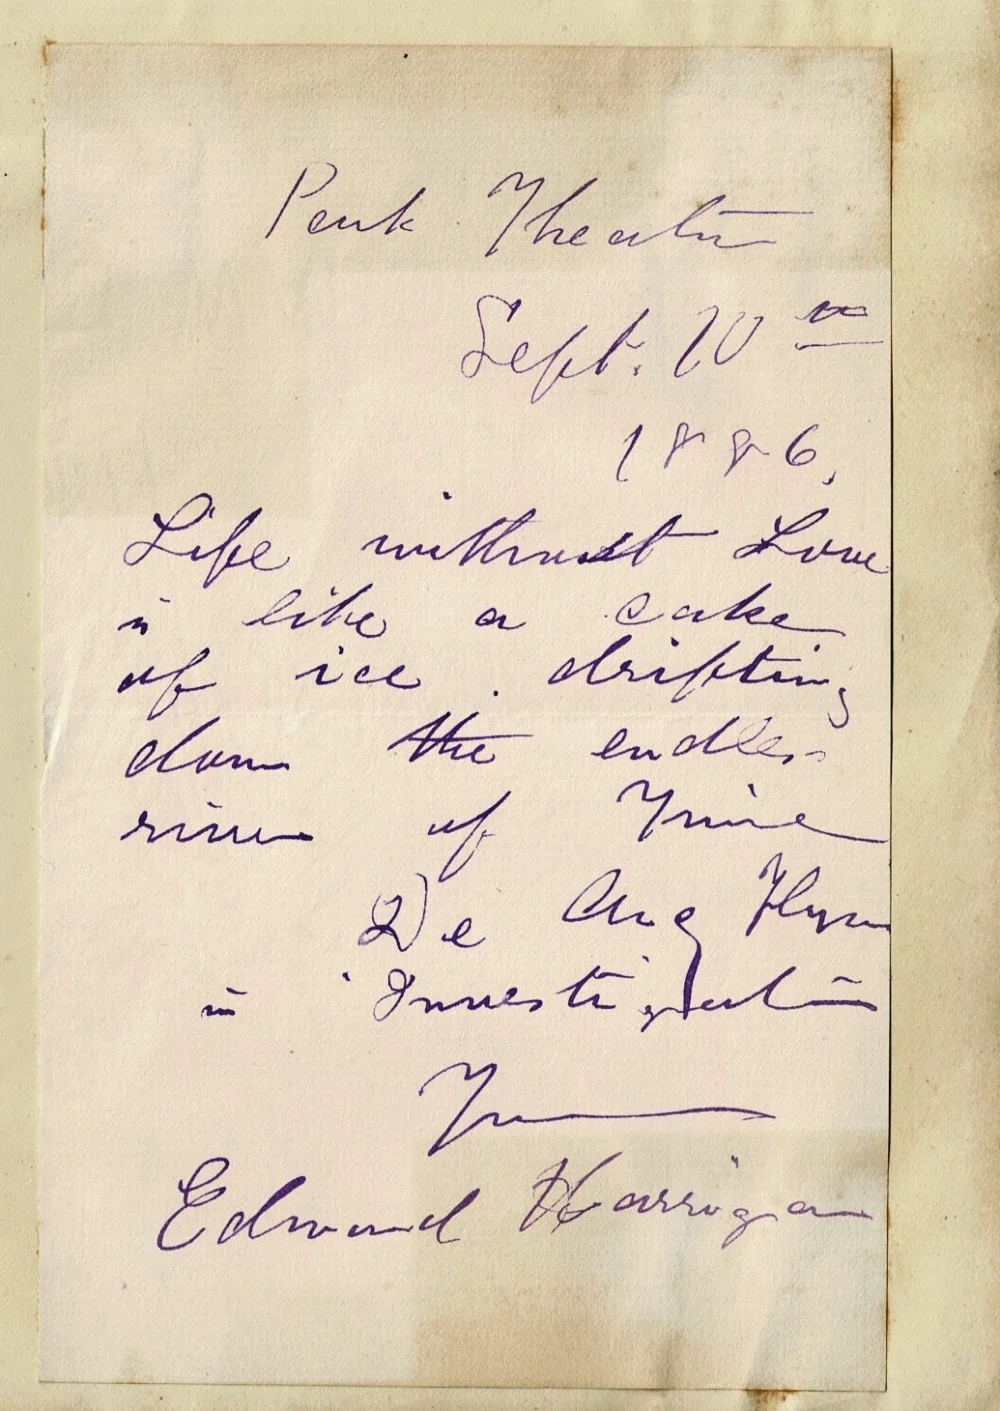 Park Theatre
Sept. 20th
1886.
Life without Love
is like a cake
of ice drifting
down the endless
river of Time
De Arcy Flynn
in "Investigation
Yours
Edward Harrigan